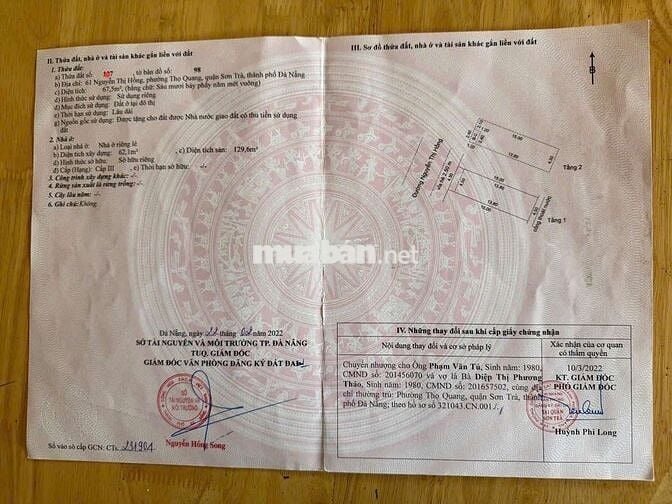 II. Thửa đất, nhà ở và tài sản khác gắn liền với đất
1. Thửa đất:
a) Thửa đất số: 107, tờ bản đồ số: 98
b) Địa chỉ: 61 Nguyễn Thị Hồng, phường Thọ Quang, quận Sơn Trà, thành phố Đà Nẵng
c) Diện tích: 67,5m², (bằng chữ: Sáu mươi bảy phẩy năm mét vuông)
d) Hình thức sử dụng: Sử dụng riêng
đ) Mục đích sử dụng: Đất ở tại đô thị
e) Thời hạn sử dụng: Lâu dài
g) Nguồn gốc sử dụng: Được tặng cho đất được Nhà nước giao đất có thu tiền sử dụng
đất
2. Nhà ở:
a) Loại nhà ở: Nhà ở riêng lẻ
b) Diện tích xây dựng: 62,1m², c) Diện tích sàn: 129,6m²
d) Hình thức sở hữu: Sở hữu riêng
đ) Cấp (Hạng): Cấp III e) Thời hạn sở hữu: -/-
3. Công trình xây dựng khác: -/-
4. Rừng sản xuất là rừng trồng: -/-
5. Cây lâu năm: -/-
6. Ghi chú: Không
Đà Nẵng, ngày 22 tháng 02 năm 2022
SỞ TÀI NGUYÊN VÀ MÔI TRƯỜNG TP. ĐÀ NẴNG
TUQ. GIÁM ĐỐC
GIÁM ĐỐC VĂN PHÒNG ĐĂNG KÝ ĐẤT ĐAI
SỞ
TÀI NGUYÊN VÀ
MÔI TRƯỜNG
Nguyễn Hồng Song
Số vào sổ cấp GCN: CTs
III. Sơ đồ thửa đất, nhà ở và tài sản khác gắn liền với đất
B
Đường Nguyễn Thị Hồng
vỉa hè 2.80 m
15.00
13.80
Tầng 2
4.50
15.00
13.80
13.80
15.00
4.50
cống thoát nước
Tầng 1
muaban.net
IV. Những thay đổi sau khi cấp giấy chứng nhận
Nội dung thay đổi và cơ sở pháp lý
Xác nhận của cơ quan
có thẩm quyền
Chuyển nhượng cho Ông Phạm Văn Tú, Sinh năm: 1980,
CMND số: 201456070 và vợ là Bà Diệp Thị Phương
Thảo, Sinh năm: 1980, CMND số: 201657502, cùng địa
chỉ thường trú: Phường Thọ Quang, quận Sơn Trà, thành
phố Đà Nẵng; theo hồ sơ số 321043.CN.001
10/3/2022
KT. GIÁM ĐỐC
PHÓ GIÁM ĐỐC
TẠI QUẬN
SƠN TRÀ
Huỳnh Phi Long